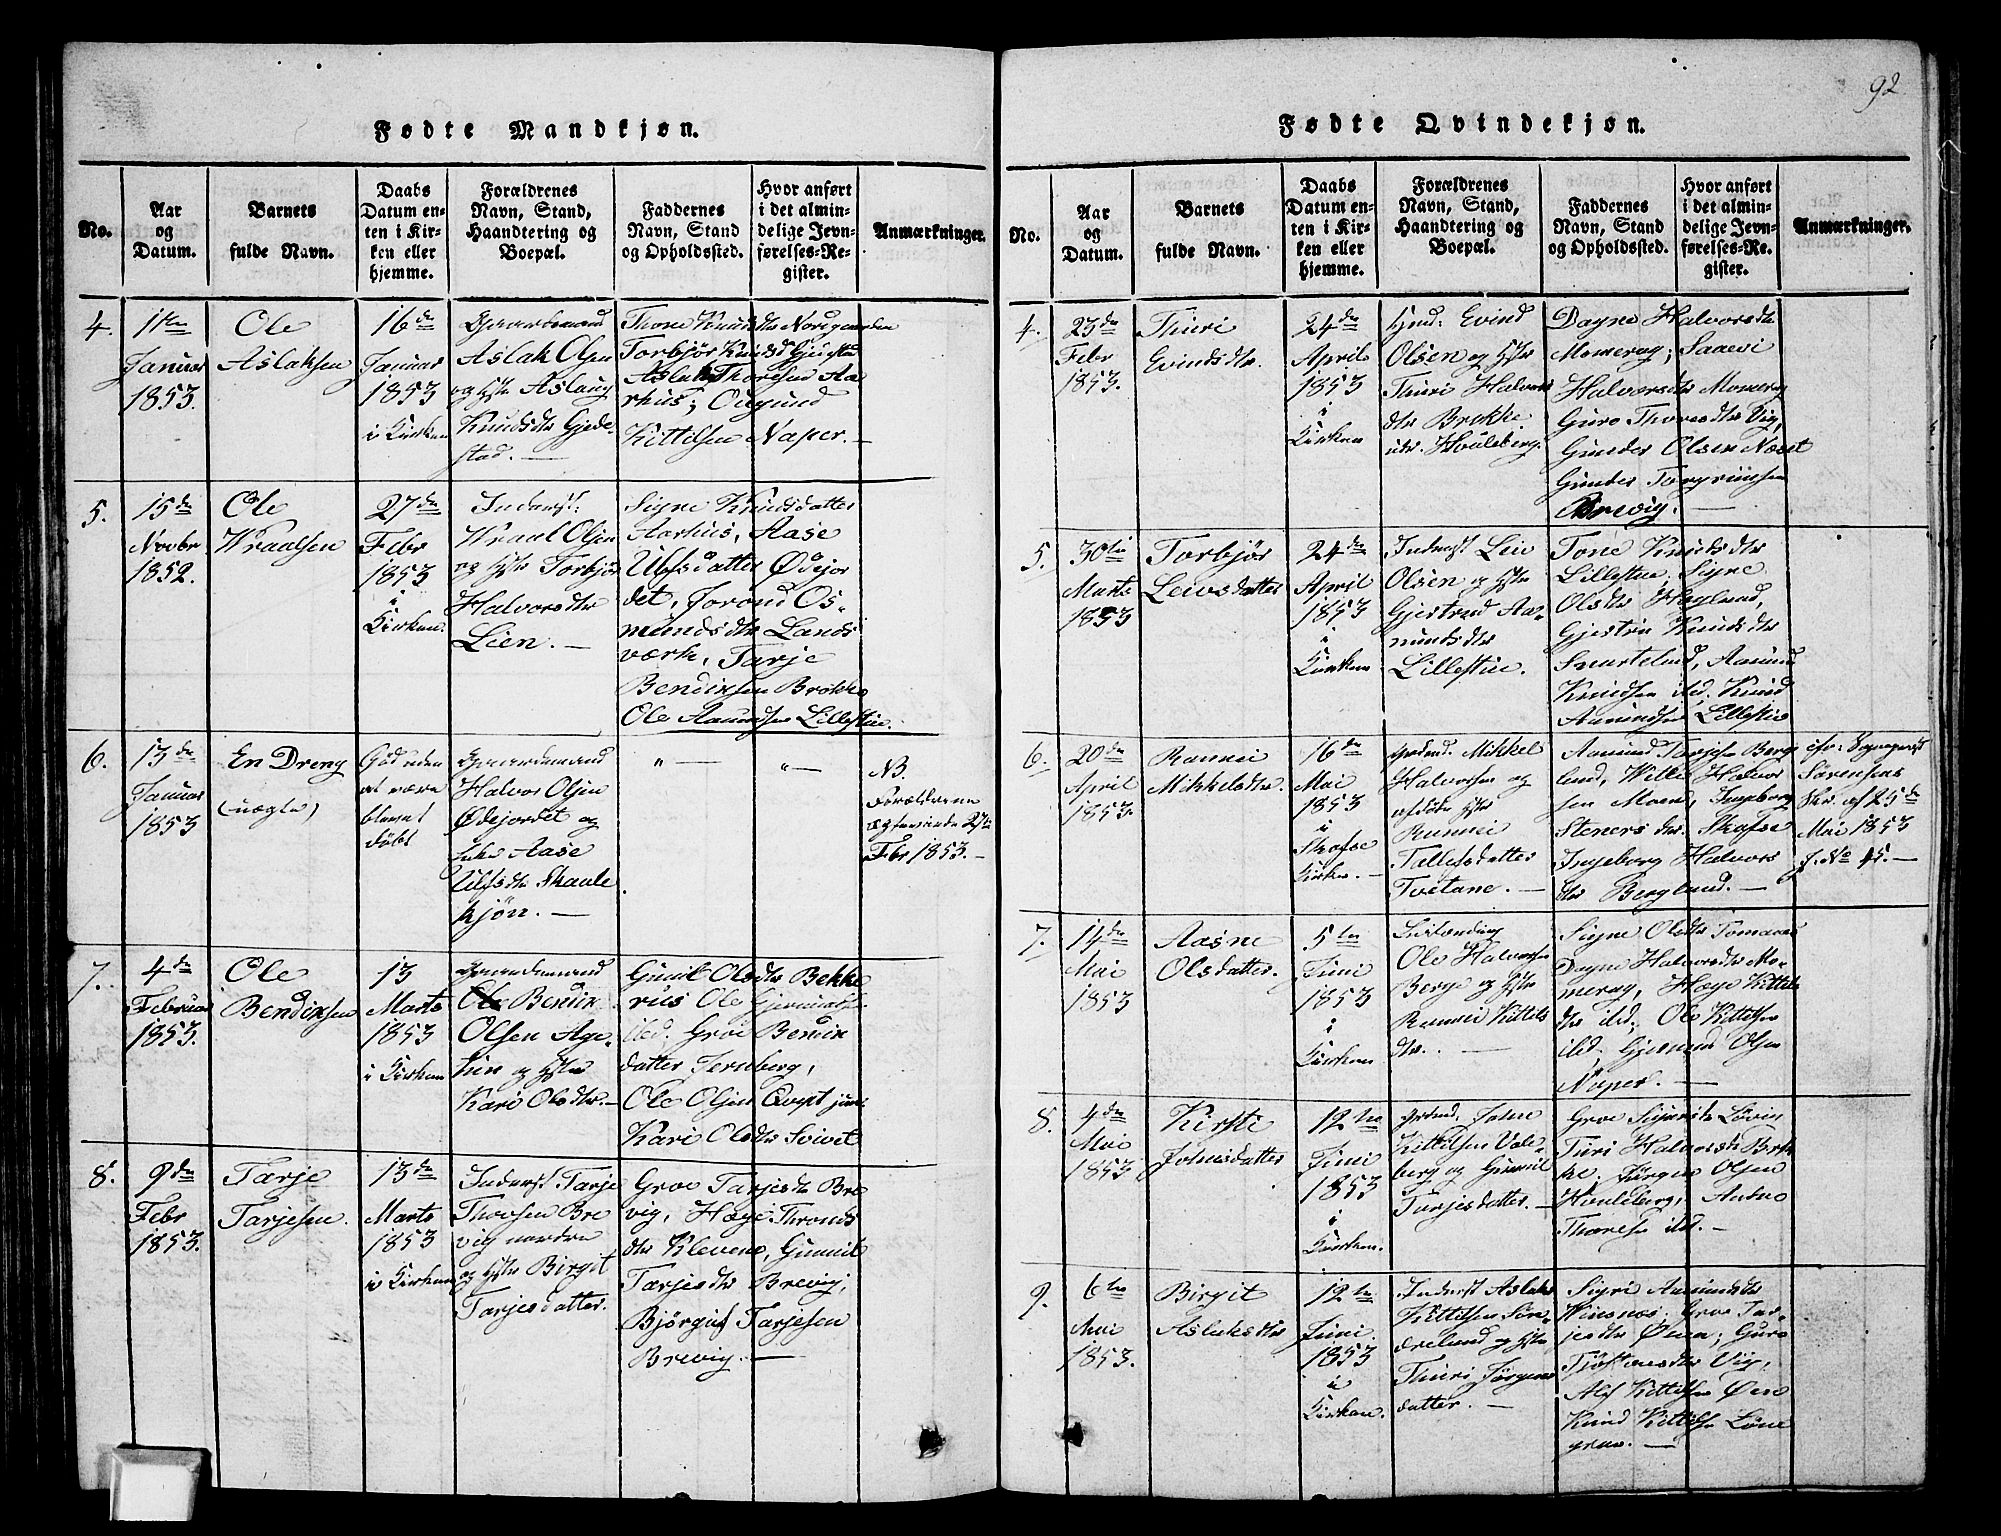 92
Fødte Mandkjøn.
No.
Aar
og
Datum.
Barnets
fulde Navn.
Daabs
Datum en-
ten i Kir-
ken eller
hjemme.
Forældrenes
Navn, Stand,
Haandtering og
Boepæl.
Faddernes
Navn, Stand
og Opholdssted.
Hvor anført
i det almin-
delige Jevn-
førelses-Re-
gister.
Anmærkninger.
4.
1ste
Januar
1853.
Ole
Aslaksen
16de
Januar
1853
i Kirken
Gaardmand
Aslak Olsen
og Hstr Aslaug
Knudsdtr Gjede-
stad. —
Thone Knudsdtr Norigaarden
Torbjør Knudsd Gjedestad
Aslak Thoresen Aa-
rhus; Ougund
Kittilsen Naper. —
5.
15de
Novbr
1852.
Ole
Wraalsen
27de
Febr
1853
i
Kirken.
Inderst:
Wraal Olsen
og Hstr Torbjør
Halvorsdtr
Lien. —
Signe Knudsdatter
Aarhus, Aase
Ulfsdatter Ødejor
det, Jorond Os-
mundsdtr Lands
værk, Tarje
Bendixsen Brokke
Ole Aamundsen Lillestue.
6.
13de
Januar
1853
En Dreng
(uægte)
Død uden
at være
blevet
døbt
Gaardmand
Halvor Olsen
Ødejordet og
Aase
Ulfsdtr Skaule
kjøn. —
" —
" —
NB.
Forældrene
ægteviede 27de
Febr 1853. —
7.
4de
Februar
1853.
Ole
Bendixsen
13
Marts
1853
i Kirken
Gaardmand
Bendix
Olsen Age-
lien og Hstr
Kari Olsdtr. —
Gunil Olsdtr Bekke
rus Ole Gjermundsn
ibd. Groe Bendix
datter Jernberg,
Ole Olsen Qvept jun:
Kari Olsdtr Svivet
8.
9de
Febr
1853.
Tarje
Tarjesen.
13de
Marts
1853
i Kirken
Inderst Tarje
Thovsen Bre
vig nordre
og Hstr Birgit
Tarjesdatter.
Groe Tarjesdtr Bre
vig, Hæge Thronds
dtr Klevene, Gunnil
Tarjesdtr Brevig,
Bjørguf Tarjesen
Brevig. —
Fødte Qvindekjøn.
No.
Aar
og
Datum.
Barnets
fulde Navn.
Daabs
Datum en-
ten i Kir-
ken eller
hjemme.
Forældrenes
Navn, Stand,
Haandtering og
Boepæl.
Faddernes
Navn, Stand
og Opholdssted.
Hvor anført
i det almin-
delige Jevn-
førelses-Re-
gister.
Anmærkninger.
4.
23de
Febr
1853.
Thuri
Evindsdtr.
24de
April
1853
i
Kirken
Evind
Olsen og Hstr
Thuri Halvors
dtr Brokke
undr. Houleberg.
Dagne Halvorsdtr
Momrag; Saaevi
Halvorsdtr Momrag
Guro Thoresdtr Vig,
Gunder Olsen Næset
Gunder Torgrimsen
Brevig. —
5.
30te
Marts
1853
Torbjør
Leivsdatter
24de
April
1853
i
Kirken
Inderst Leiv
Olsen og Hstr
Gjestrud Aa-
mundsdtr
Lillestue.
Tone Knudsdtr
Lillestue, Signe
Olsdtr Haglund,
Gjestru Knudsdtr
Svartelund, Aamund
Knudsen ibd. Knud
Aamundsen Lillestue
6.
20de
April
1853.
Ramnei
Mikkelsdtr.
16de
Mai
1853
i
Skafse
Kirken. —
Mikkel
Halvorsen og
afdøde Hstr
Ramnei
Tallefsdatter
Tvetane. —
Aamund Tarjesen Berg
lund, Wille Halvor
sen Moen, Ingeborg
Steners dtr. Skafse
Ingeborg Halvors
dtr Berglund. —
cfr: Sognepræst
Sørensens
Skr. af 25de
Mai 1853
J. No 45. —
7.
14de
Mai
1853
Aasne
Olsdatter.
5te
Juni
1853
i
Kirken
Ole Halvorsen
Berge og Hstr
Ramnei Kittels
dtr. —
Signe Olsdtr Tømeraas
Dagne Halvorsdtr Mo-
merag, Hæge Kittels
dtr ibd. Ole Kittilsen
ibid. Gjermund Olsen
Naper. —
8.
4de
Mai
1853
Kirsti
Johnsdatter
12te
Juni
1853
i
Kirken.
John
Kittilsen Vale-
berg og Gunnil
Tarjesdatter. —
Groe Sigurdsdtr Løvin
Turi Halvorsdtr Brok
ke, Jørgen Olsen
Houleberg, Autno
Thoresen ibd. —
9.
6te
Mai
1853.
Birgit
Aslaksdtr
12te
Juni
1853
i
Kirken.
Inderst Aslak
Kittilsen Søn-
drelund og Hstr
Thuri Jørgens
datter. —
Sigri Aamundsdtr
Vinsnæs, Groe Tar-
jesdtr Øien; Guro
Tjøstensdtr Vig,
Alf Kittilsen Øien
Knud Kittilsen Løne
gren. —